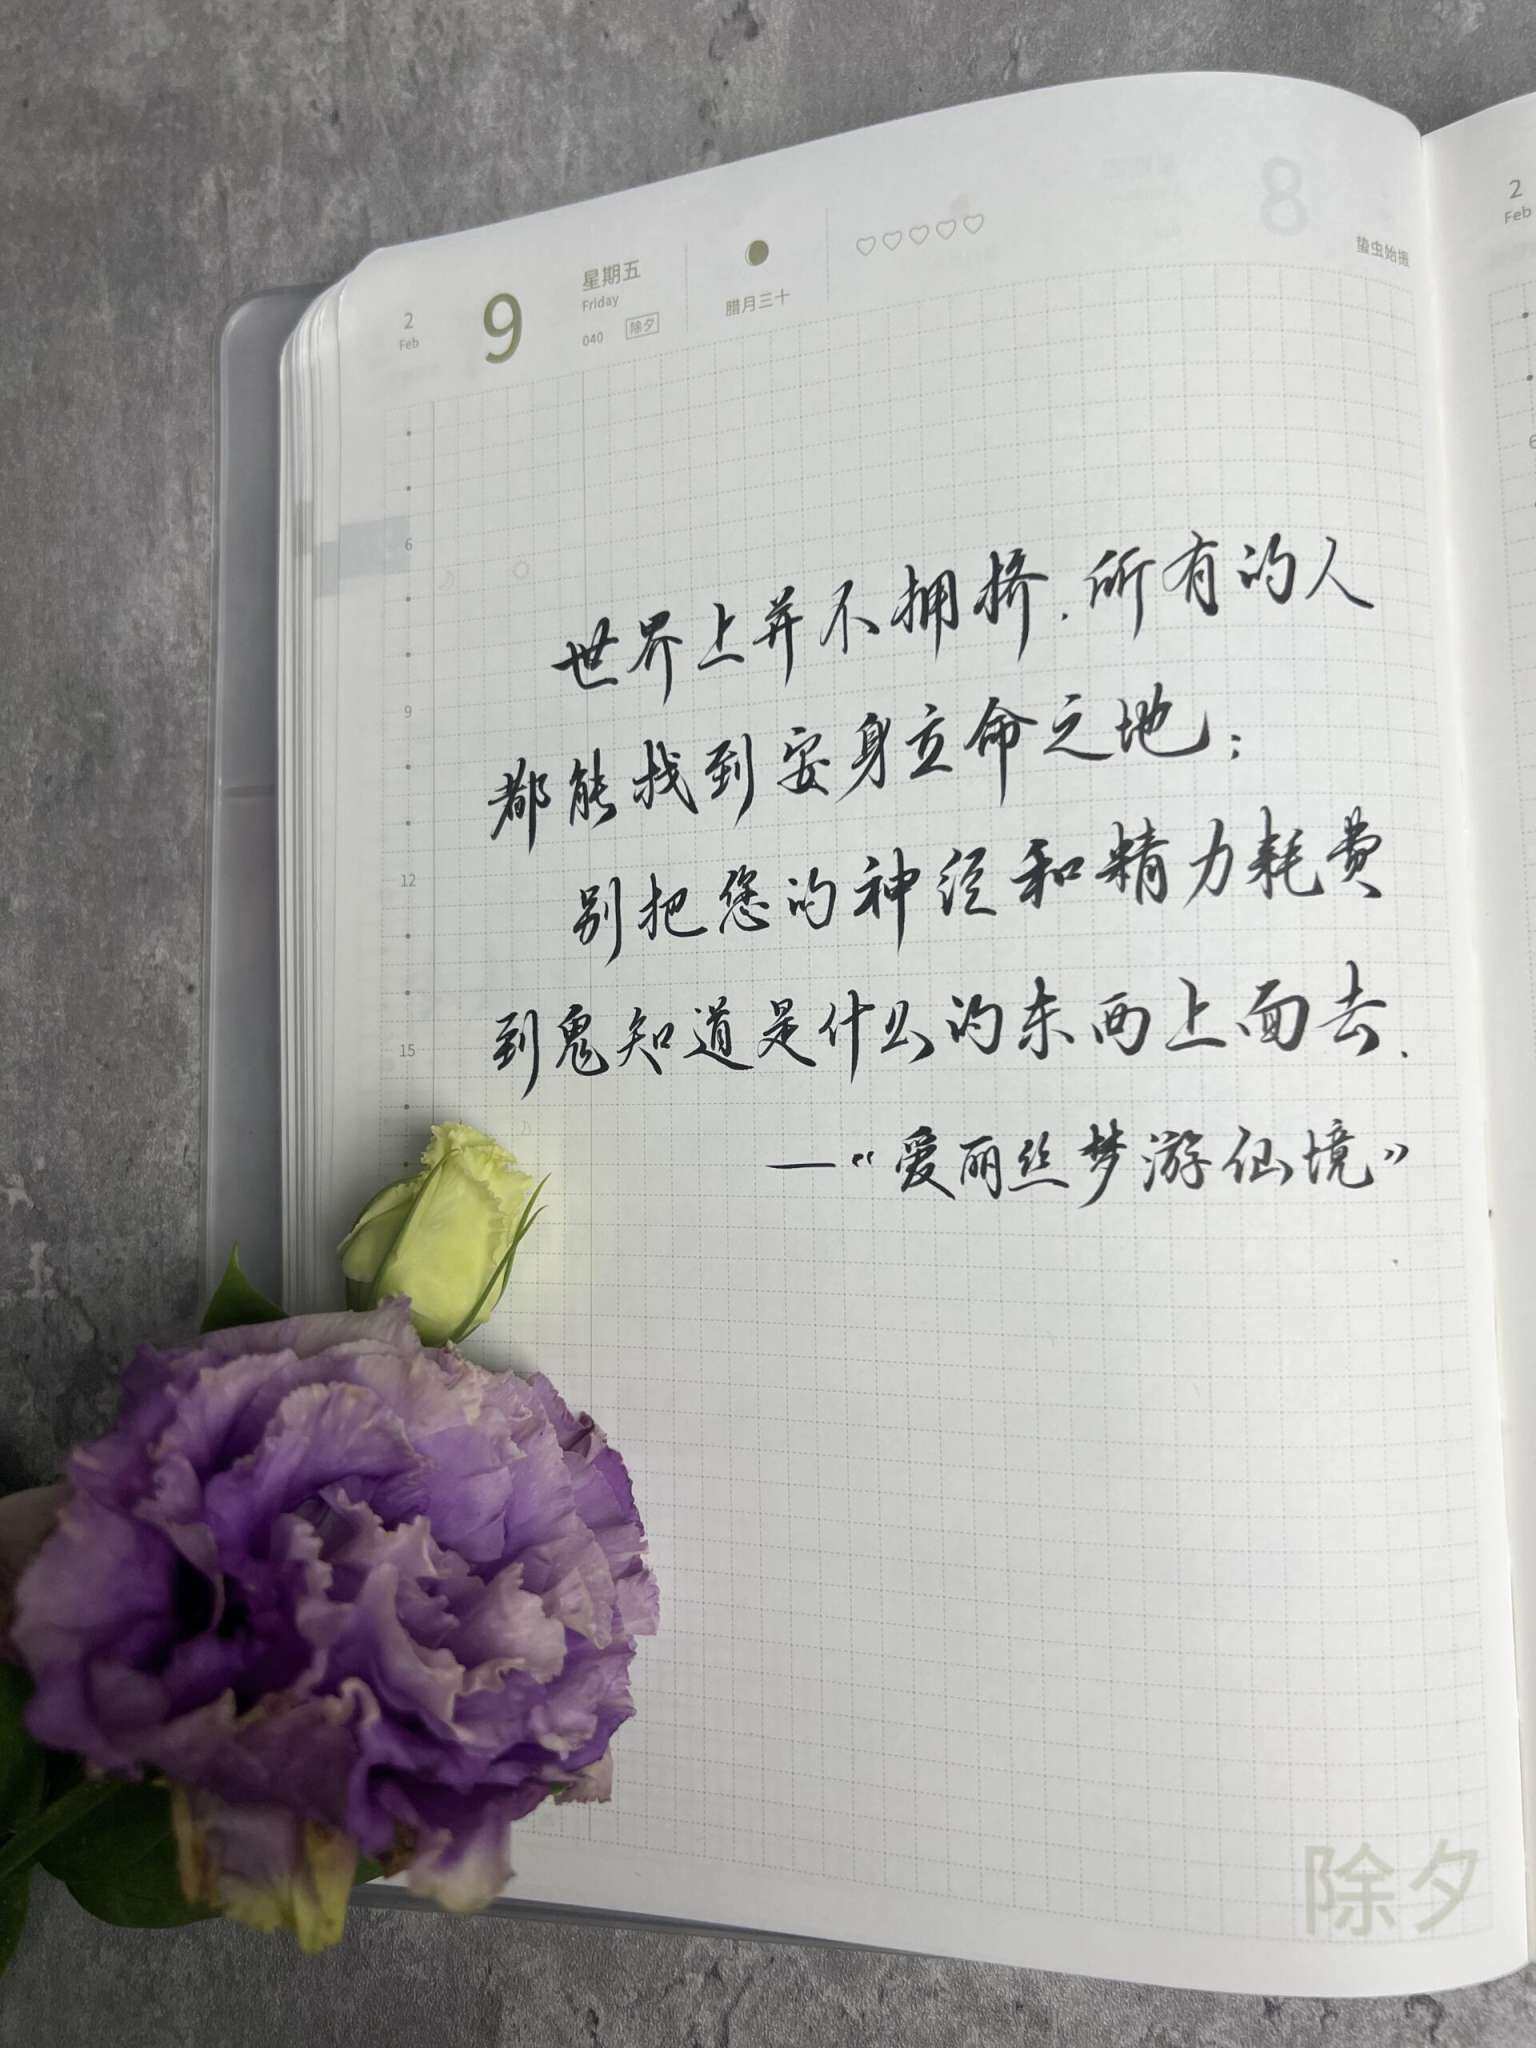 2
Feb
9
星期五
Friday
040 除夕
腊月三十
8
蛰虫始振
2
Feb
世界上并不拥挤.所有的人
都能找到安身立命之地;
别把您的神经和精力耗费
到鬼知道是什么的东西上面去.
—“爱丽丝梦游仙境”
6
9
12
15
6
除夕